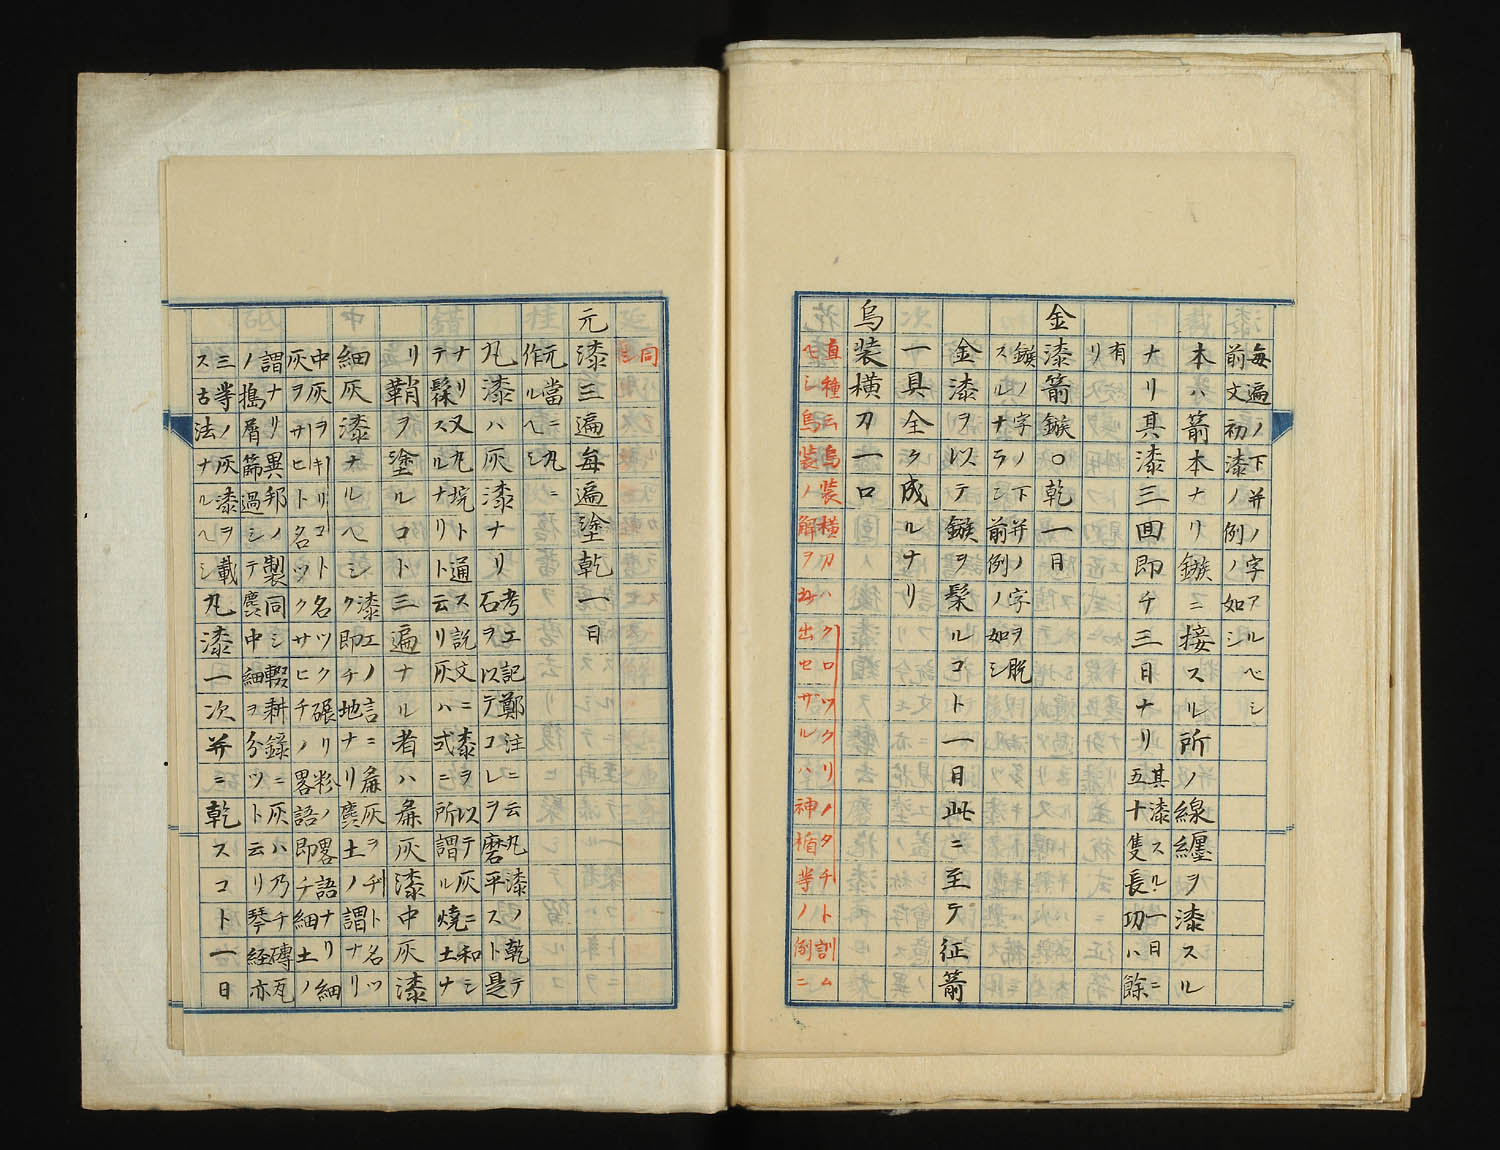 毎遍ノ下并ノ字アルベシ
前文初漆ノ例ノ如シ
本ハ箭本ナリ鏃ニ接スル所ノ線纏ヲ漆スル
ナリ其漆三回即チ三日ナリ其漆スル一日ニ
五十隻長功ハ餘
有
リ
金漆箭鏃〇乾一日
鏃ノ字ノ下并ノ字ヲ脱
スルナラン前例ノ如シ
金漆ヲ以テ鏃ヲ髹ルコト一日此ニ至テ征箭
一具全ク成ルナリ
烏装横刀一口
直種云烏装横刀ハクロツクリノタチト訓ム
ベシ烏装ノ解ヲ出セザルハ神楯等ノ例ニ
同
シ
元漆三遍毎遍塗乾一日
元當ニ丸ニ
作ルベシ
丸漆ハ灰漆ナリ考工記鄭注ニ云丸漆ノ乾テ
石ヲ以テコレヲ磨平スト是
ナリ又丸垸ト通ス説文ニ桼ヲ以テ灰ニ和シ
テ髹スルナリト云リ灰ハ或ニ所謂ル燒土ナ
リ鞘ヲ塗ルコト三遍ナル者ハ麁灰漆中灰漆
細灰漆ナルベシ漆工ノ言ニ麁灰ヲヂト名ツ
ク即チ地ナリ麌土ノ謂ナリ
中灰ヲキリコト名ツク碾リ粉ノ畧語ナリ細
灰ヲサヒト名ツクサヒチノ畧語即チ細土ノ
謂ナリ異邦ノ製同シ輟耕録ニ灰ハ乃チ磚瓦
ノ搗屑篩過シテ麌中細ヲ分ツト云リ琴経亦
三等ノ灰漆ヲ載
ス古法ナルベシ丸漆一次并ニ乾スコト一日